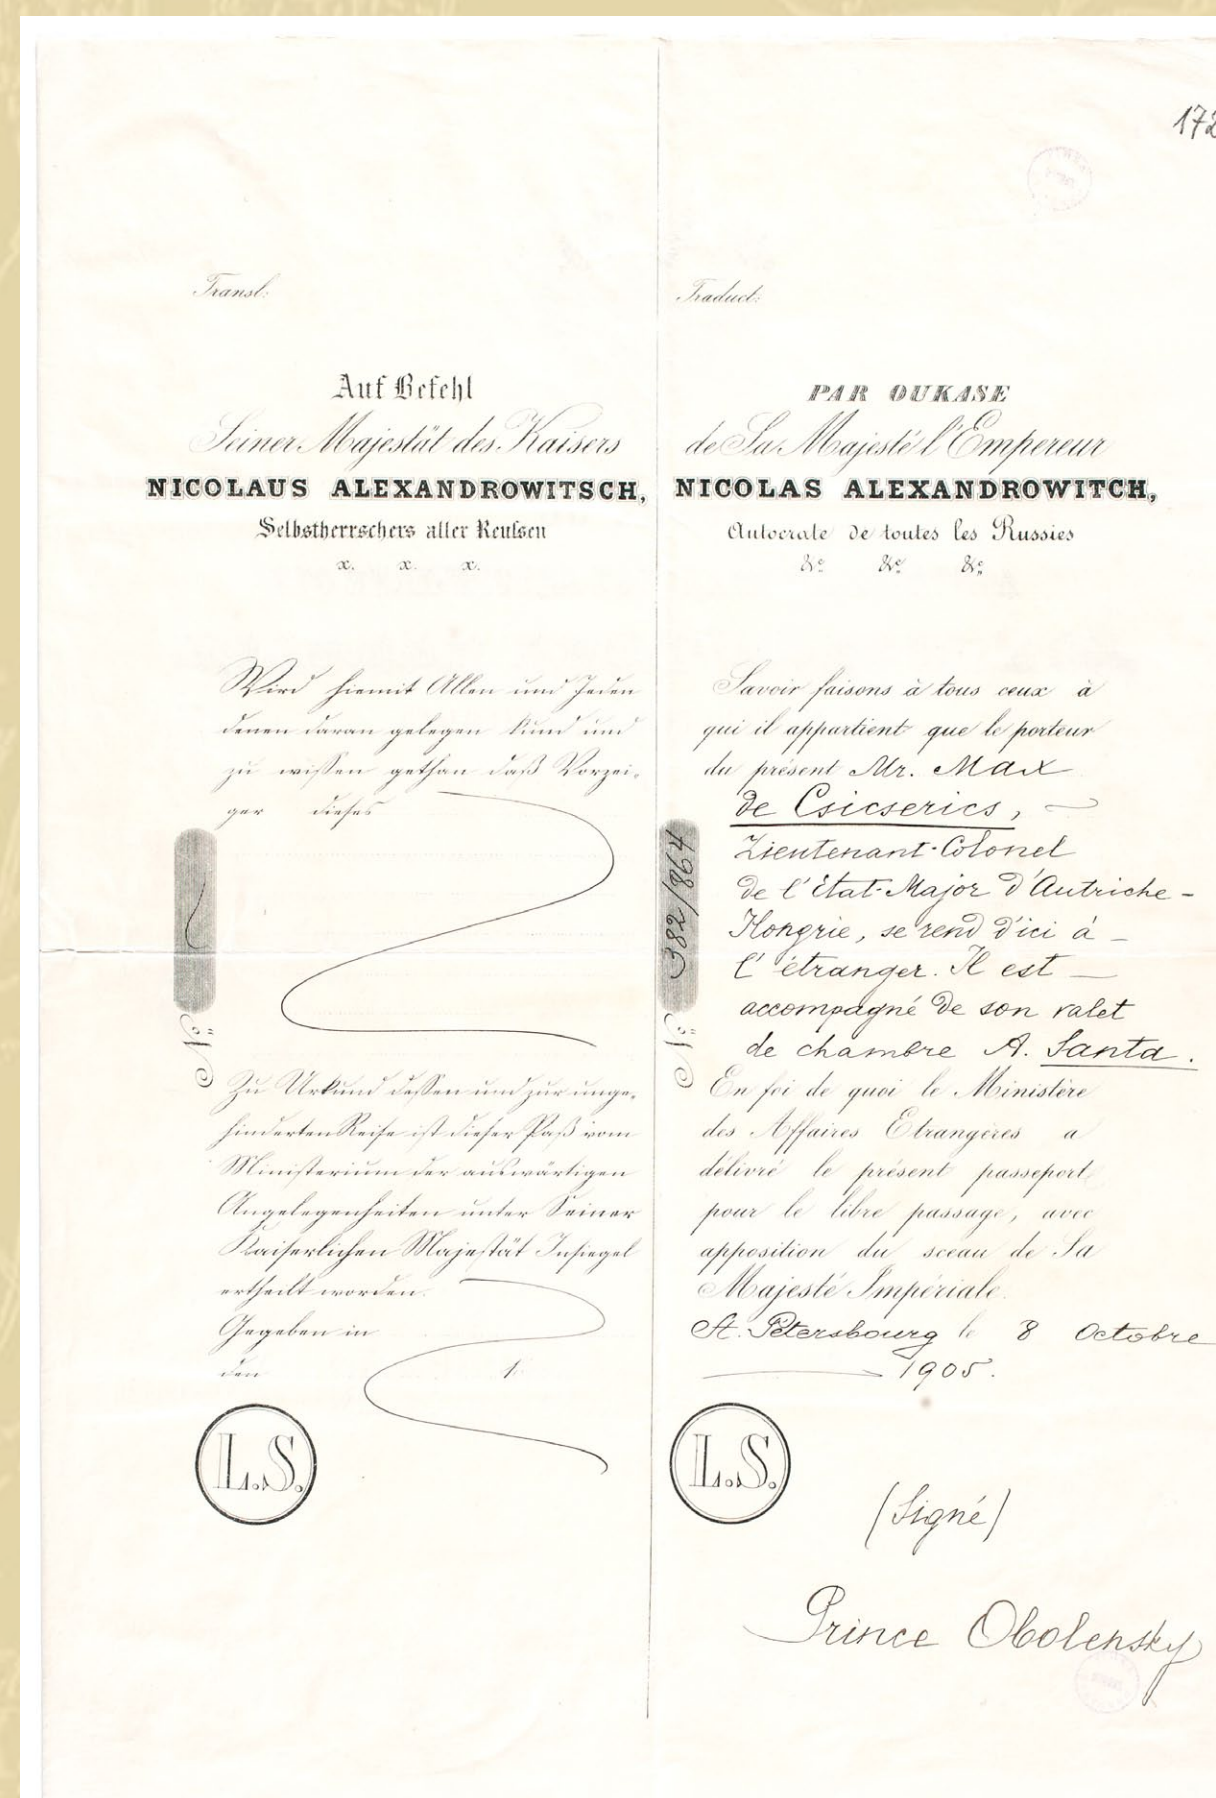 172
Transl:
Auf Befehl
Seiner Majestät des Kaisers
NICOLAUS ALEXANDROWITSCH,
Selbstherrschers aller Reußen
x. x. x.
Wird hiemit Allen und Jeden
denen daran gelegen kund und
zu wissen gethan daß Vorzei-
ger dieses
No
Zu Urkund dessen und zur unge-
hinderten Reise ist dieser Paß vom
Ministerium der auswärtigen
Angelegenheiten unter Seiner
Kaiserlichen Majestät Insiegel
ertheilt worden.
Gegeben in
den 1
L.S.
Traduct:
PAR OUKASE
de Sa Majesté l'Empereur
NICOLAS ALEXANDROWITCH,
Autocrate de toutes les Russies
&c &c &c
Savoir faisons à tous ceux à
qui il appartient que le porteur
du présent Mr. Max
de Csicserics,
Lieutenant-Colonel
de l'État-Major d'Autriche-
Hongrie, se rend d'ici à
l'étranger. Il est
accompagné de son valet
de chambre A. Santa.
No 382/864
En foi de quoi le Ministère
des Affaires Etrangères a
délivré le présent passeport
pour le libre passage, avec
apposition du sceau de Sa
Majesté Impériale.
St. Pétersbourg le 8 Octobre
1905.
L.S.
(Signé)
Prince Obolensky